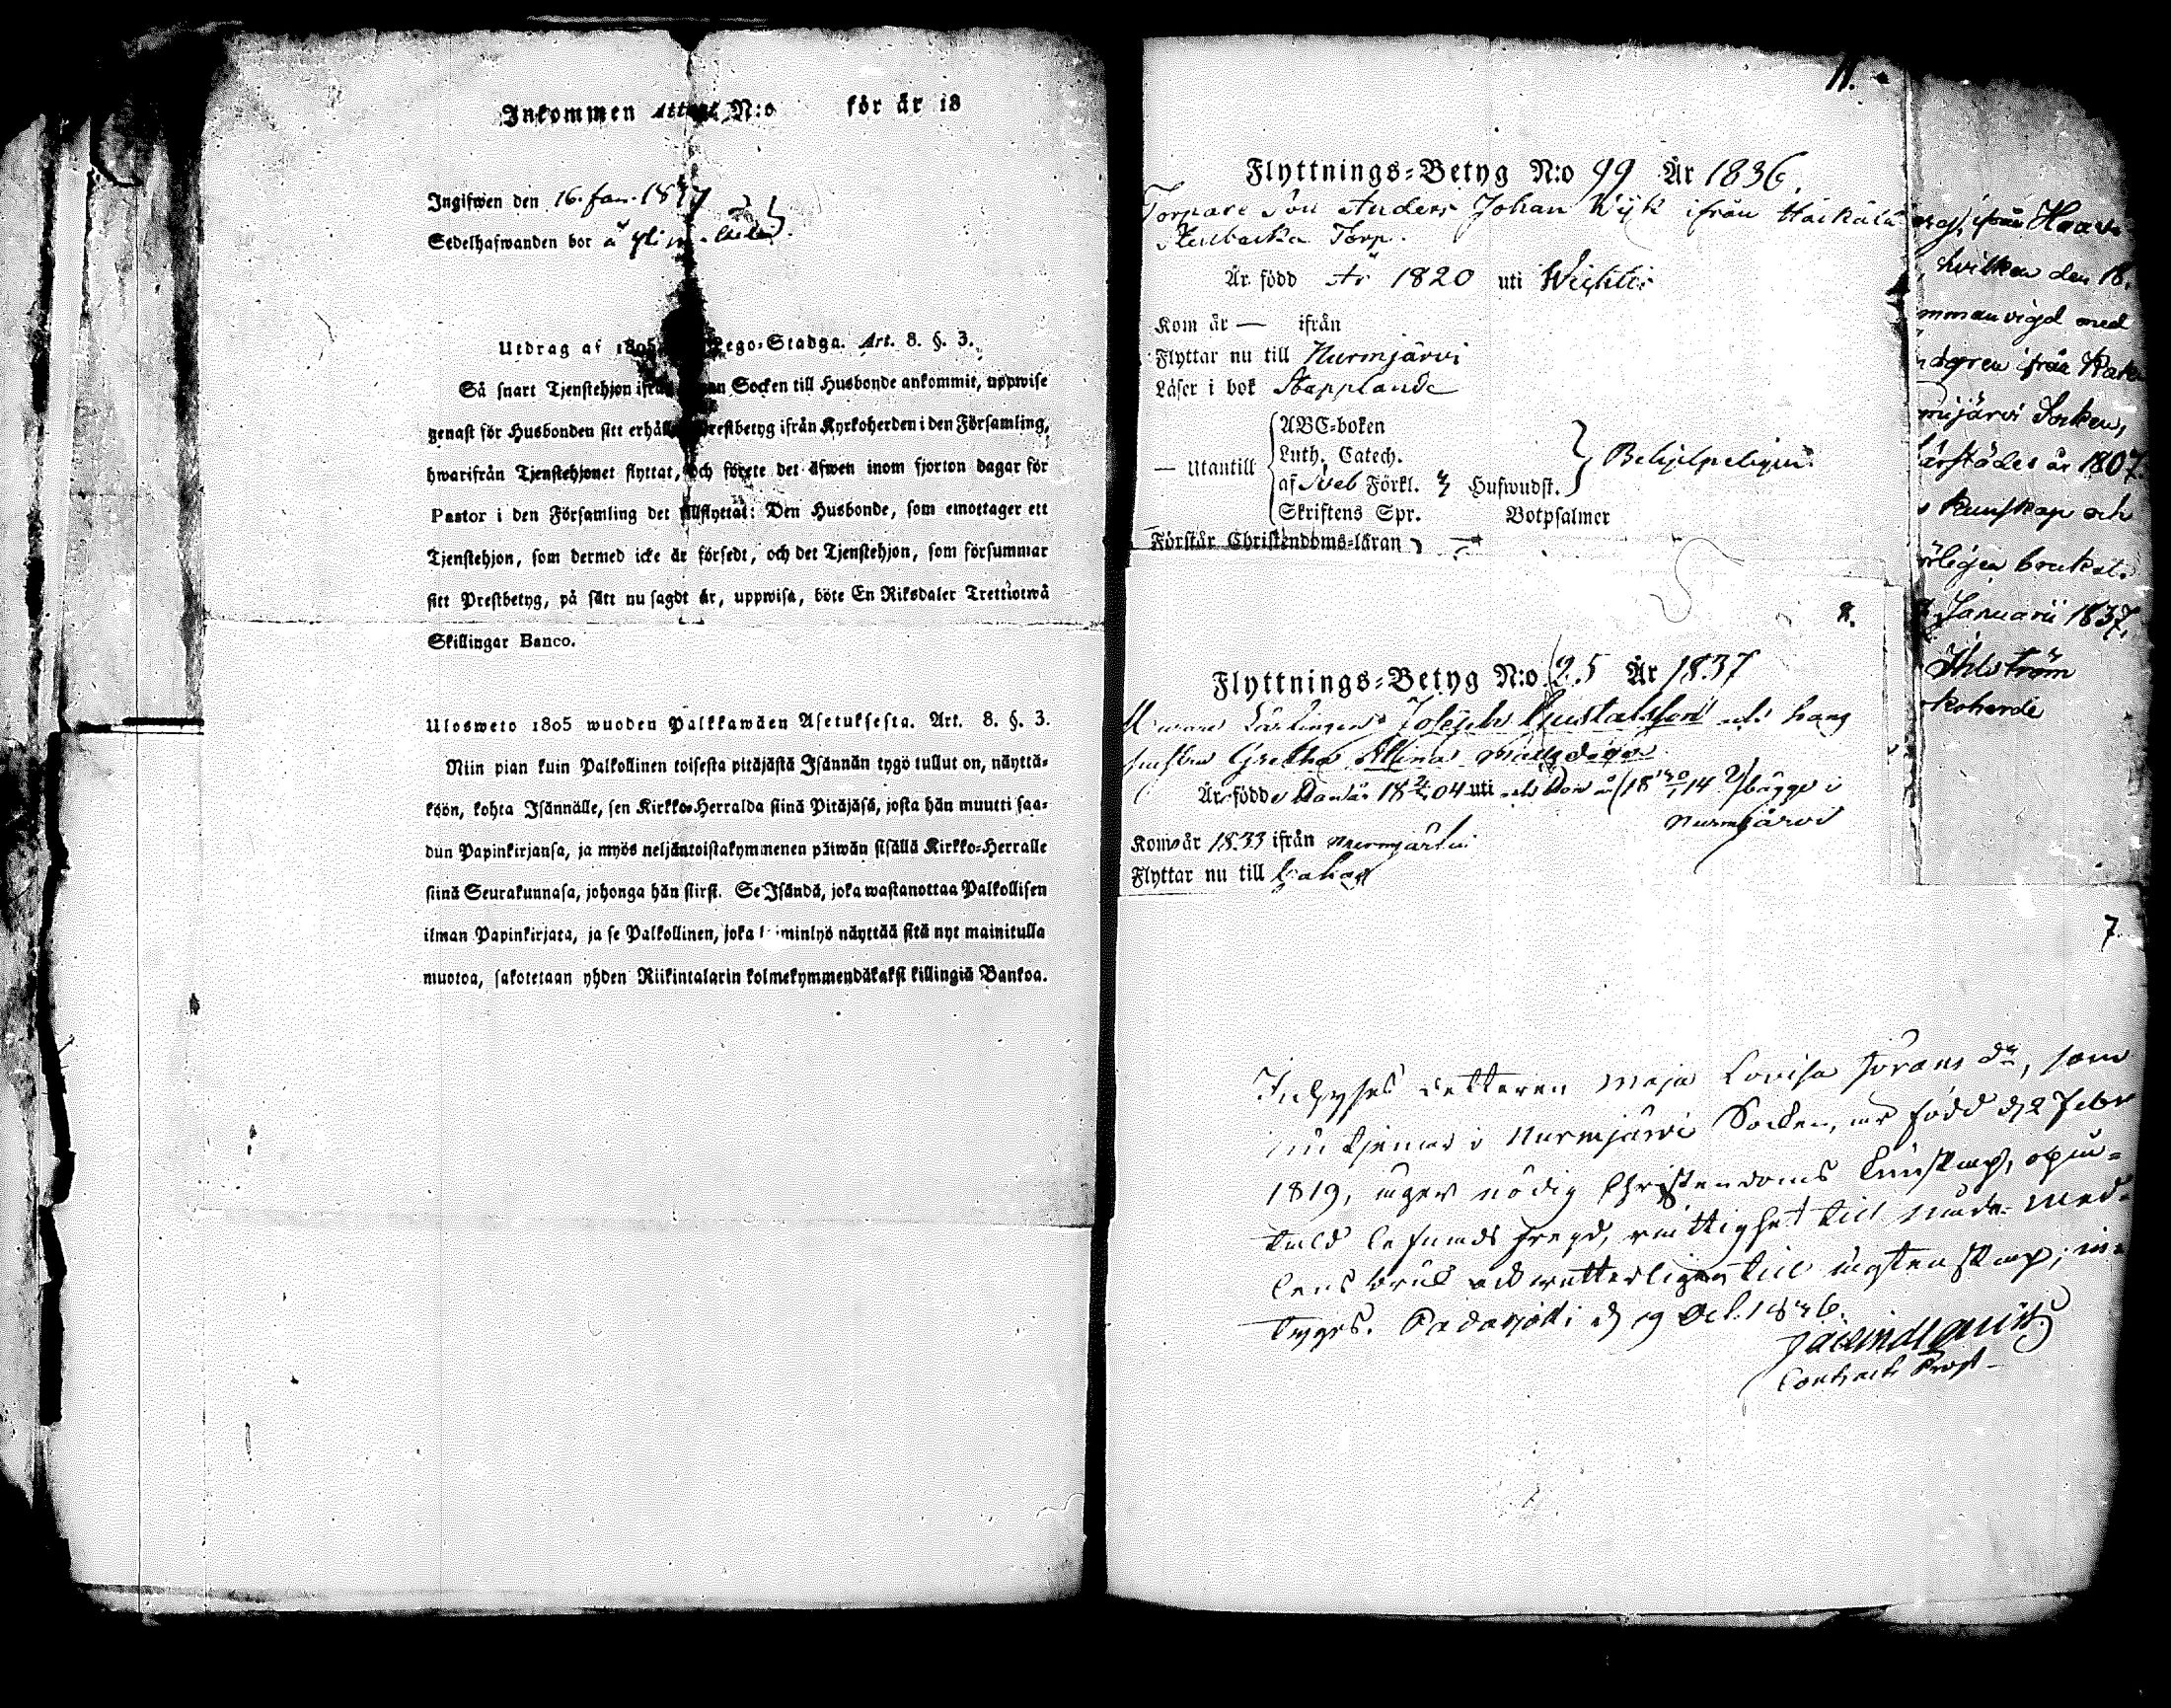 Inkommen Attest N:o för år 18
Ingifwen den 16. Jan. 1837
Sedelhafwanden bor å
Utdrag af 1805 Lego-Stadga. Art. 8. §. 3.
Så snart Tjenstehjon ifrån annan Socken till Husbonde ankommit, uppwise
genast för Husbonden sitt erhållna Prestbetyg ifrån Kyrkoherden i den Församling,
hwarifrån Tjenstehjonet flyttat, och förete det äfwen inom fjorton dagar för
Pastor i den Församling det tillflyttat: Den Husbonde, som emottager ett
Tjenstehjon, som dermed icke är försedt, och det Tjenstehjon, som försummar
sitt Prestbetyg, på sätt nu sagdt är, uppwisa, böte En Riksdaler Trettiotwå
Skillingar Banco.
Ulosweto 1805 wuoden Palkkawäen Asetuksesta. Art. 8. §. 3.
Niin pian kuin Palkollinen toisesta pitäjästä Isännän tygö tullut on, näyttä-
köön, kohta Isännälle, sen Kirkko-Herralda siinä Pitäjäsä, josta hän muutti saa-
dun Papinkirjansa, ja myös neljäntoistakymmenen päiwän sisällä Kirkko-Herralle
siinä Seurakunnasa, johonga hän siirst. Se Isändä, joka wastanottaa Palkollisen
ilman Papinkirjata, ja se Palkollinen, joka laiminlyö näyttää sitä nyt mainitulla
muotoa, sakotetaan yhden Riikintalarin kolmekymmendäkaksi killingiä Bankoa.
11.
Flyttnings-Betyg N:o 99 År 1836.
Torpare Son Anders Johan Wijk ifrån
Stenbacka Torp.
Är född År 1820 uti Wichtis
Kom år — ifrån
Flyttar nu till Nurmjärvi
Läser i bok Stapplande
— Utantill
ABC-boken
Luth. Catech.
af Sveb Förkl. Hufwudst.
Skriftens Spr. Botpsalmer
Behjelpeligen
Förstår Christendoms-läran
ifrån
hvilken den 18.
mmanvigd med
dgren ifrån
mijärvi Socken,
ärstädes år 1807.
kunskap och
rligen brukat.
Januarii 1837,
Öhlström
koherde
8.
Flyttnings-Betyg N:o 25 År 1837
Joseph Gustafsson
Gretha
Är födde 04 uti 14 bägge i
Nurmjärvi
Kom år 1833 ifrån Nurmjärvi
Flyttar nu till
7.
Maja Lovisa Jörans dr, som
nu tjenar i Nurmjärvi Socken, är född d. 2 Febr
1819, äger nödig Christendoms kunskap, opin-
tald lefnads fregd, rättighet till nåde-med-
lens bruk till ägtenskap,
tygas. Padasjoki d. 19 Oct. 1836.
Contracts Prost